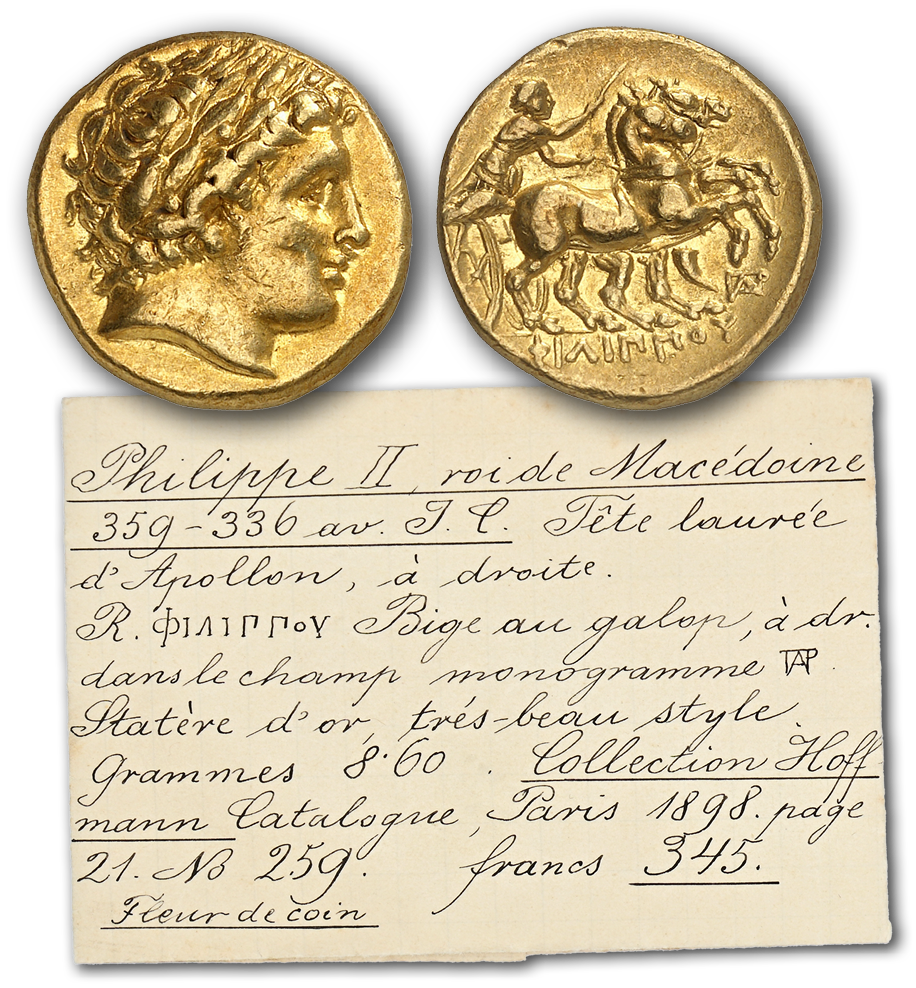 ΦΙΛΙΠΠΟΥ
Philippe II, roi de Macédoine
359-336 av. J. C. Tête laurée
d'Apollon, à droite.
R. ΦΙΛΙΠΠΟΥ Bige au galop, à dr.
dans le champ monogramme ΤΑΡ.
Statère d'or, trés-beau style.
Grammes 8·60. Collection Hoff
mann Catalogue, Paris 1898. page
21. No 259. francs 345.
Fleur de coin